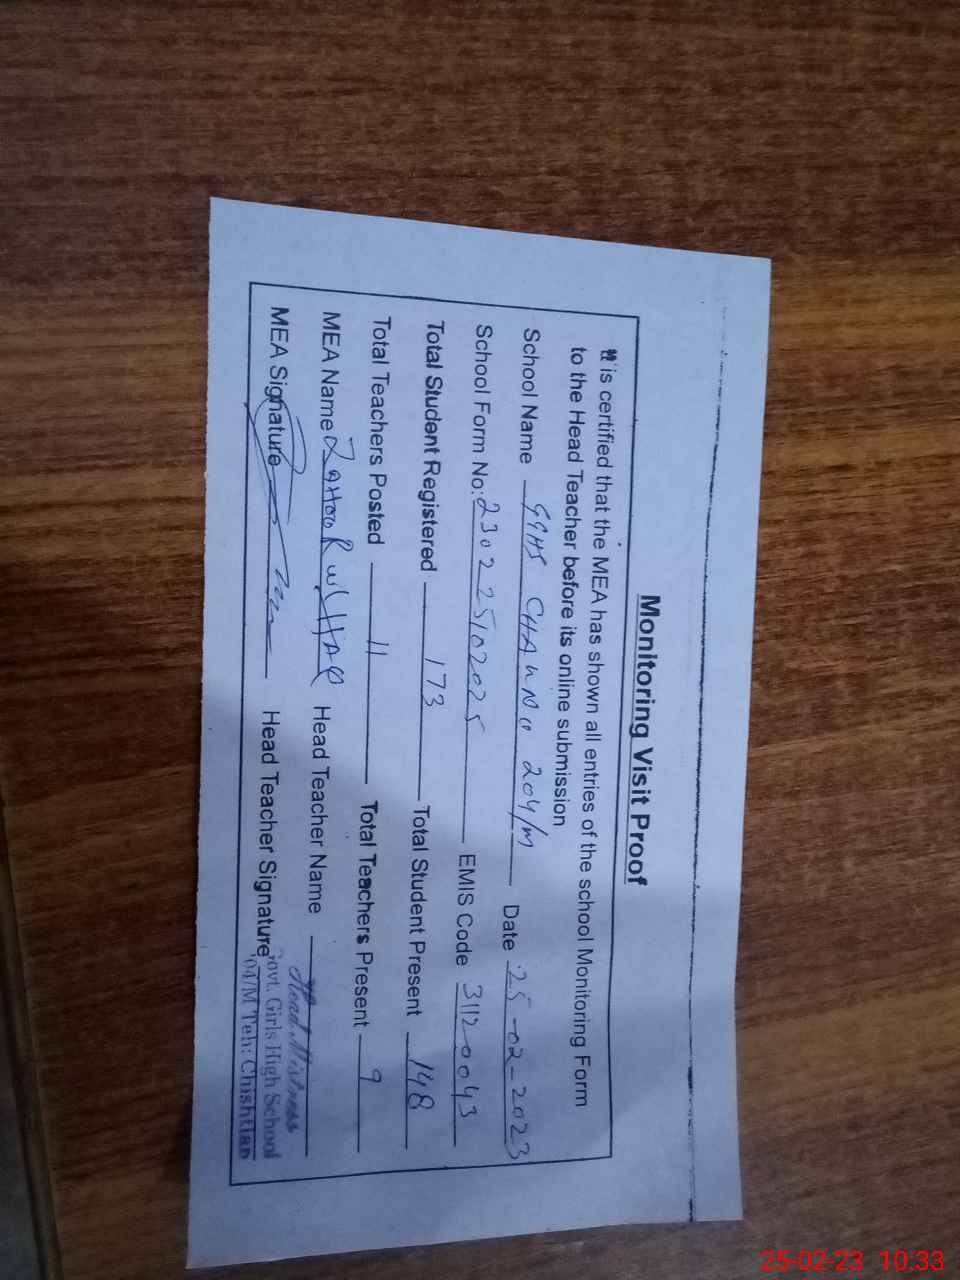 Monitoring Visit Proof
It is certified that the MEA has shown all entries of the school Monitoring Form
to the Head Teacher before its online submission
School Name GGHS CHAK NO 204/M Date 25-02-2023
School Form No: 230225102025 EMIS Code 31120043
Total Student Registered 173 Total Student Present 148
Total Teachers Posted 11 Total Teachers Present 9
MEA Name ZAHOOR UL HAQ Head Teacher Name
MEA Signature Head Teacher Signature
Head Mistress
Govt. Girls High School
204/M Teh: Chishtian
25-02-23 10:33